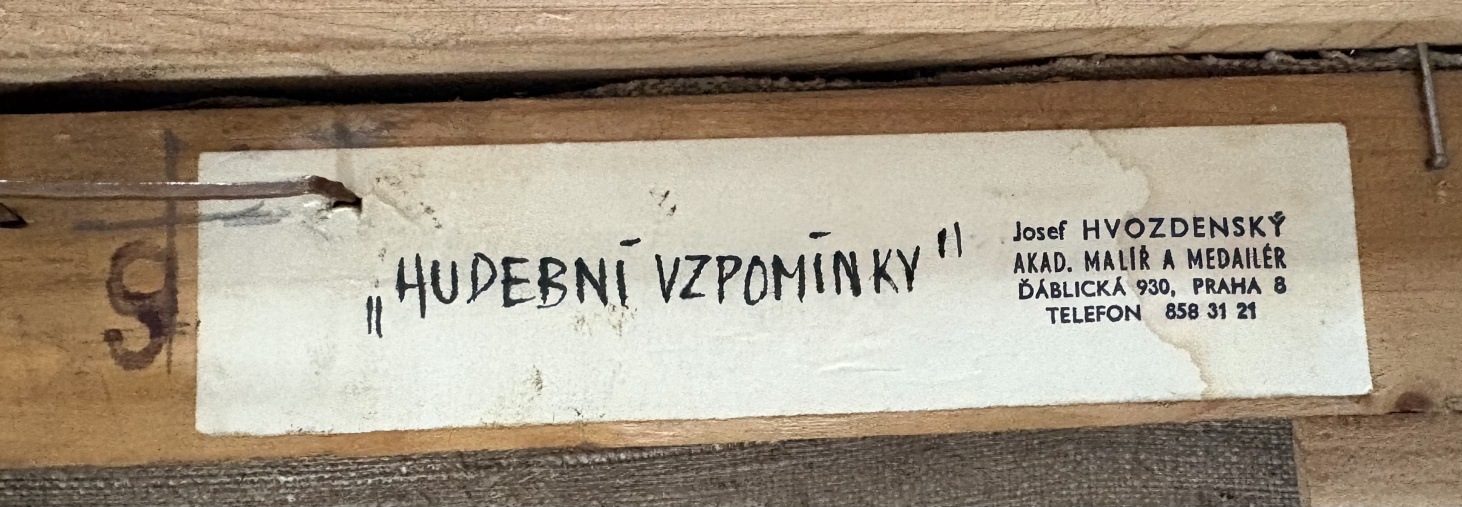 „HUDEBNÍ VZPOMÍNKY"
Josef HVOZDENSKÝ
AKAD. MALÍŘ A MEDAILÉR
ĎÁBLICKÁ 930, PRAHA 8
TELEFON 858 31 21
g